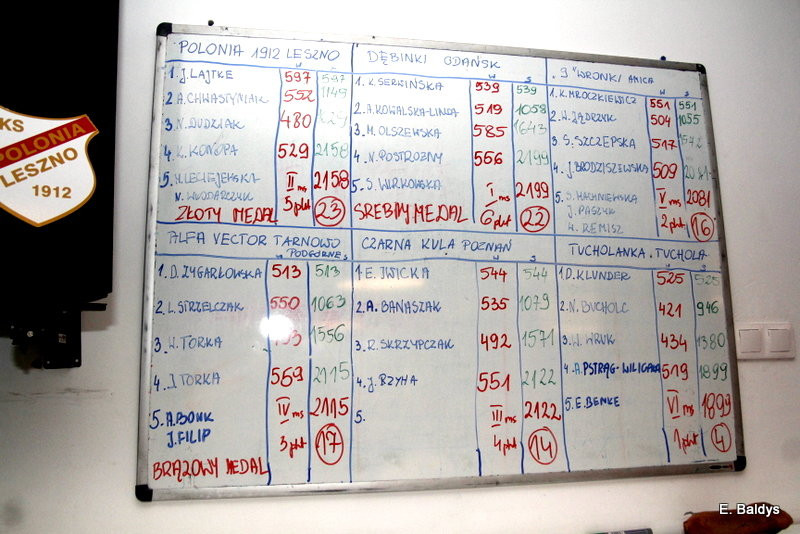 KS
POLONIA
LESZNO
1912
POLONIA 1912 LESZNO
M S
1. J. LAJTKE 597 597
2. A. CHWASTYNIAK 552 1149
3. N. DUDZIAK 480
4. K. KONOPA 529 2158
5. M. LECHEJEWSKA II ms 2158
N. WŁODARCZYK 5 pkt 23
ZŁOTY MEDAL
DĘBINKI GDAŃSK
M S
1. K. SERWIŃSKA 539 539
2. A. KOWALSKA-LINDA 519 1058
3. M. OLSZEWSKA 585 1643
4. N. POSTROZNY 556 2199
5. S. WIRKOWSKA I ms 2199
SREBRNY MEDAL 6 pkt 22
"9" WRONKI AMICA
M S
1. K. MROCZKIEWICZ 551 551
2. W. JĄDRZYK 504 1055
3. S. SZCZEPSKA 517 1572
4. J. BRODZISZEWSKA 509 2081
5. S. MACHNIEWSKA V ms 2081
J. PASZYK 2 pkt 16
A. REMISZ
ALFA VECTOR TARNOWO
PODGÓRNE
1. D. ZYGARŁOWSKA 513 513
2. L. STRZELCZAK 550 1063
3. W. TORKA 1556
4. J. TORKA 569 2115
5. A. BOUK IV ms 2115
J. FILIP 3 pkt 17
BRĄZOWY MEDAL
CZARNA KULA POZNAŃ
M S
1. E. IWICKA 544 544
2. A. BANASZAK 535 1079
3. R. SKRZYPCZAK 492 1571
4. J. RZYHA 551 2122
5. III ms 2122
4 pkt 14
TUCHOLANKA TUCHOLA
M S
1. D. KLUNDER 525 525
2. N. BUCHOLC 421 946
3. W. WRUK 434 1380
4. A. PSTRĄG-WILIGAŁA 519 1899
5. E. BENKE VI ms 1899
1 pkt 4
E. Baldys